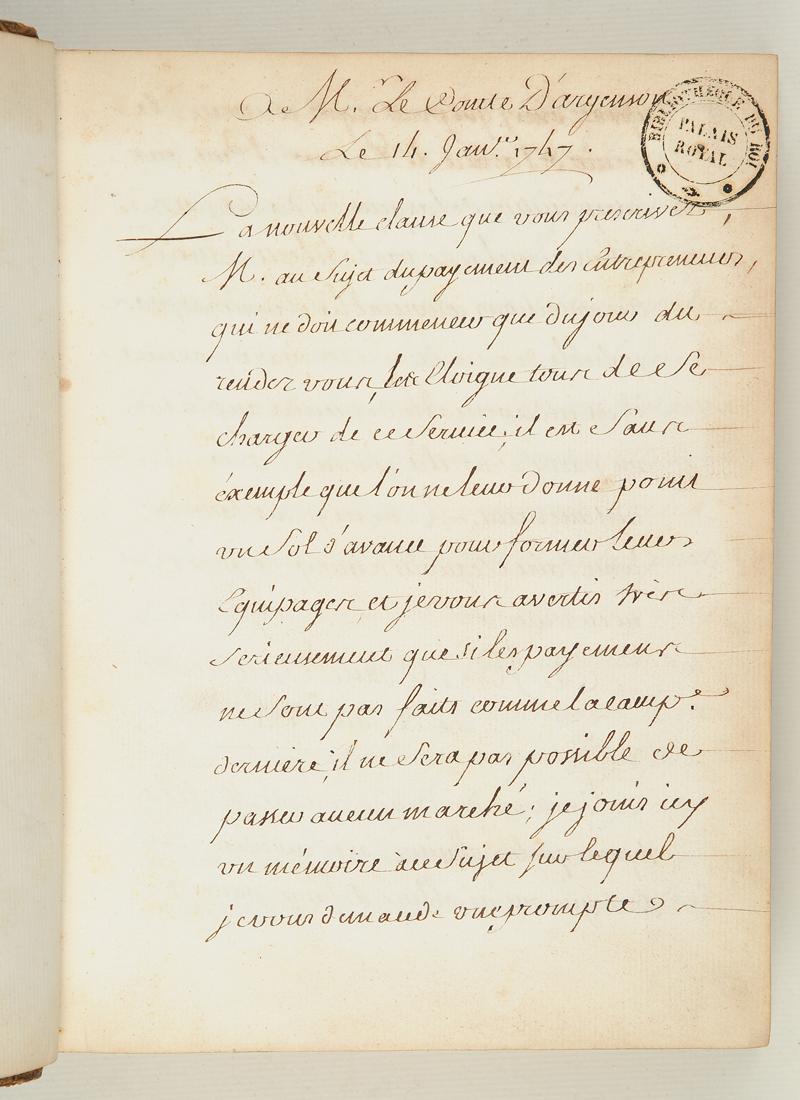 A M.r Le Comte D'argenson
Le 14. Janv.er 1747.
BIBLIOTHEQUE DU ROI
PALAIS
ROYAL
La nouvelle clause que vous prescrivez,
M. au Sujet du payement des Entrepreneurs,
qui ne doit commencer que du jour du
rendez vous, les Eloigne tous de Se
charger de ce Service; il est Sans
éxemple que l'on ne leur donne point
un Sol d'avance pour former leurs
Equipages, et je vous avertis très
serieusement que si les payemens
ne Sont pas faits comme la camp.e
derniere, il ne Sera pas possible de
passer aucun marché; je joins icy
un mémoire à ce Sujet sur lequel
je vous demande une prompte